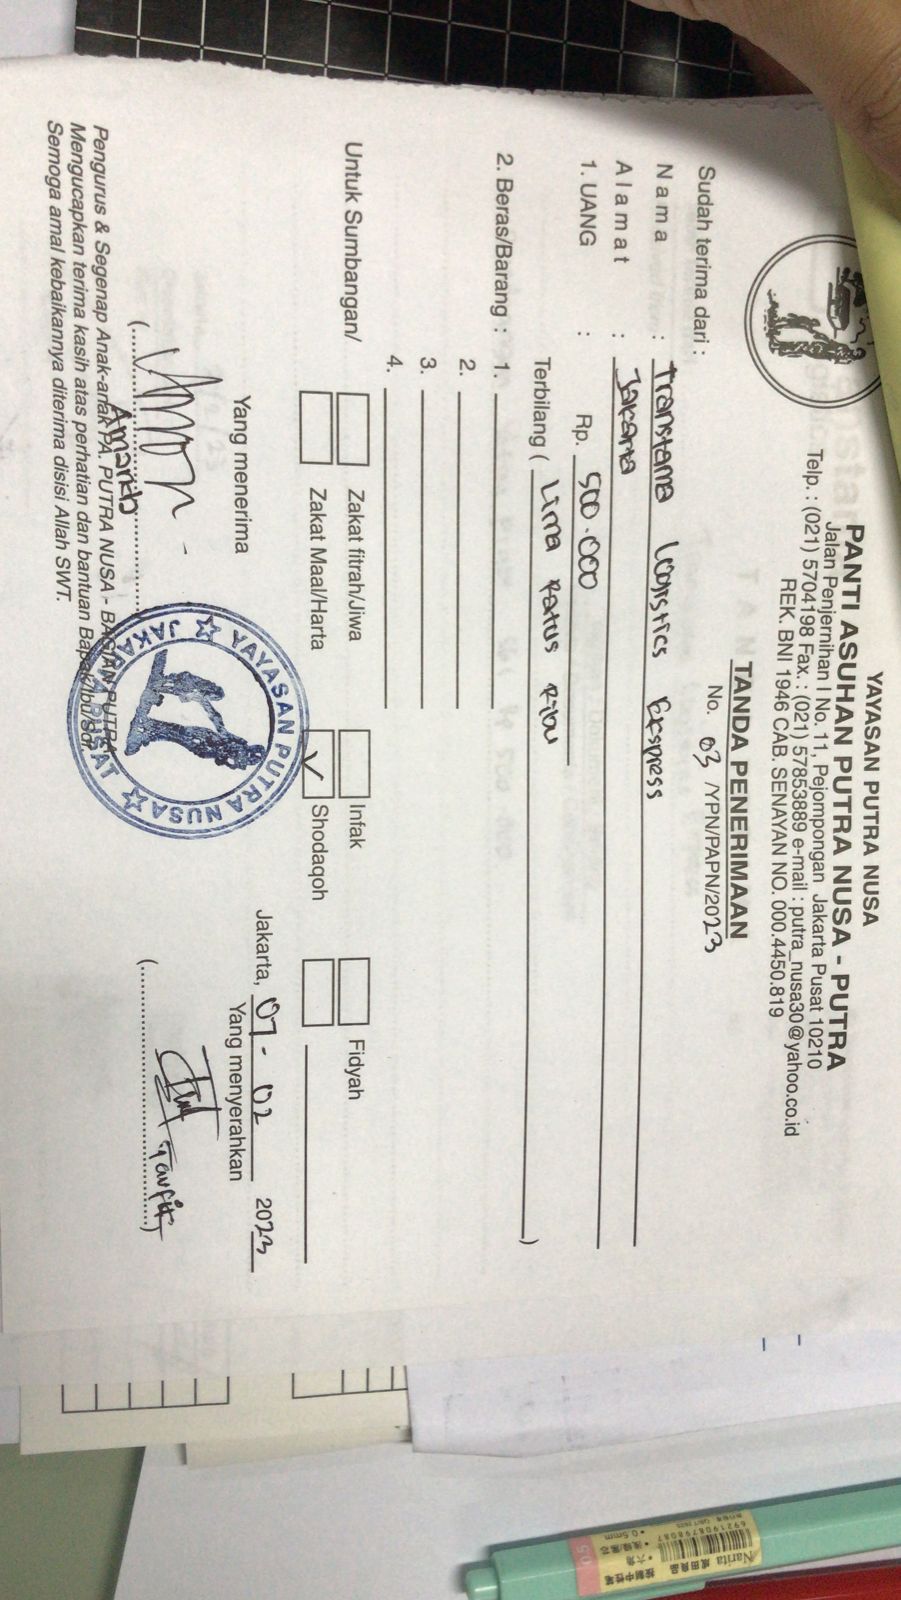 YAYASAN PUTRA NUSA
PANTI ASUHAN PUTRA NUSA - PUTRA
Jalan Penjernihan I No. 11, Pejompongan Jakarta Pusat 10210
Telp. : (021) 5704198 Fax. : (021) 57853889 e-mail : putra_nusa30@yahoo.co.id
REK. BNI 1946 CAB. SENAYAN NO. 000.4450.819
TANDA PENERIMAAN
No. 03 /YPN/PAPN/2023
Sudah terima dari :
Nama : Transtama Logistics Express
Alamat : Jakarta
1. UANG : Rp. 500.000
Terbilang ( Lima Ratus Ribu )
2. Beras/Barang : 1.
2.
3.
4.
Untuk Sumbangan/ Zakat fitrah/Jiwa Infak Fidyah
Zakat Maal/Harta Shodaqoh
Jakarta, 07-02 2023
Yang menerima Yang menyerahkan
Amanda Taufik
YAYASAN PUTRA NUSA
JAKARTA PUSAT
Pengurus & Segenap Anak-anak PA. PUTRA NUSA - BAGIAN PUTRA
Mengucapkan terima kasih atas perhatian dan bantuan Bapak/Ibu/Sdr.
Semoga amal kebaikannya diterima disisi Allah SWT.
Narita
6921908798087
0.5mm
0.5